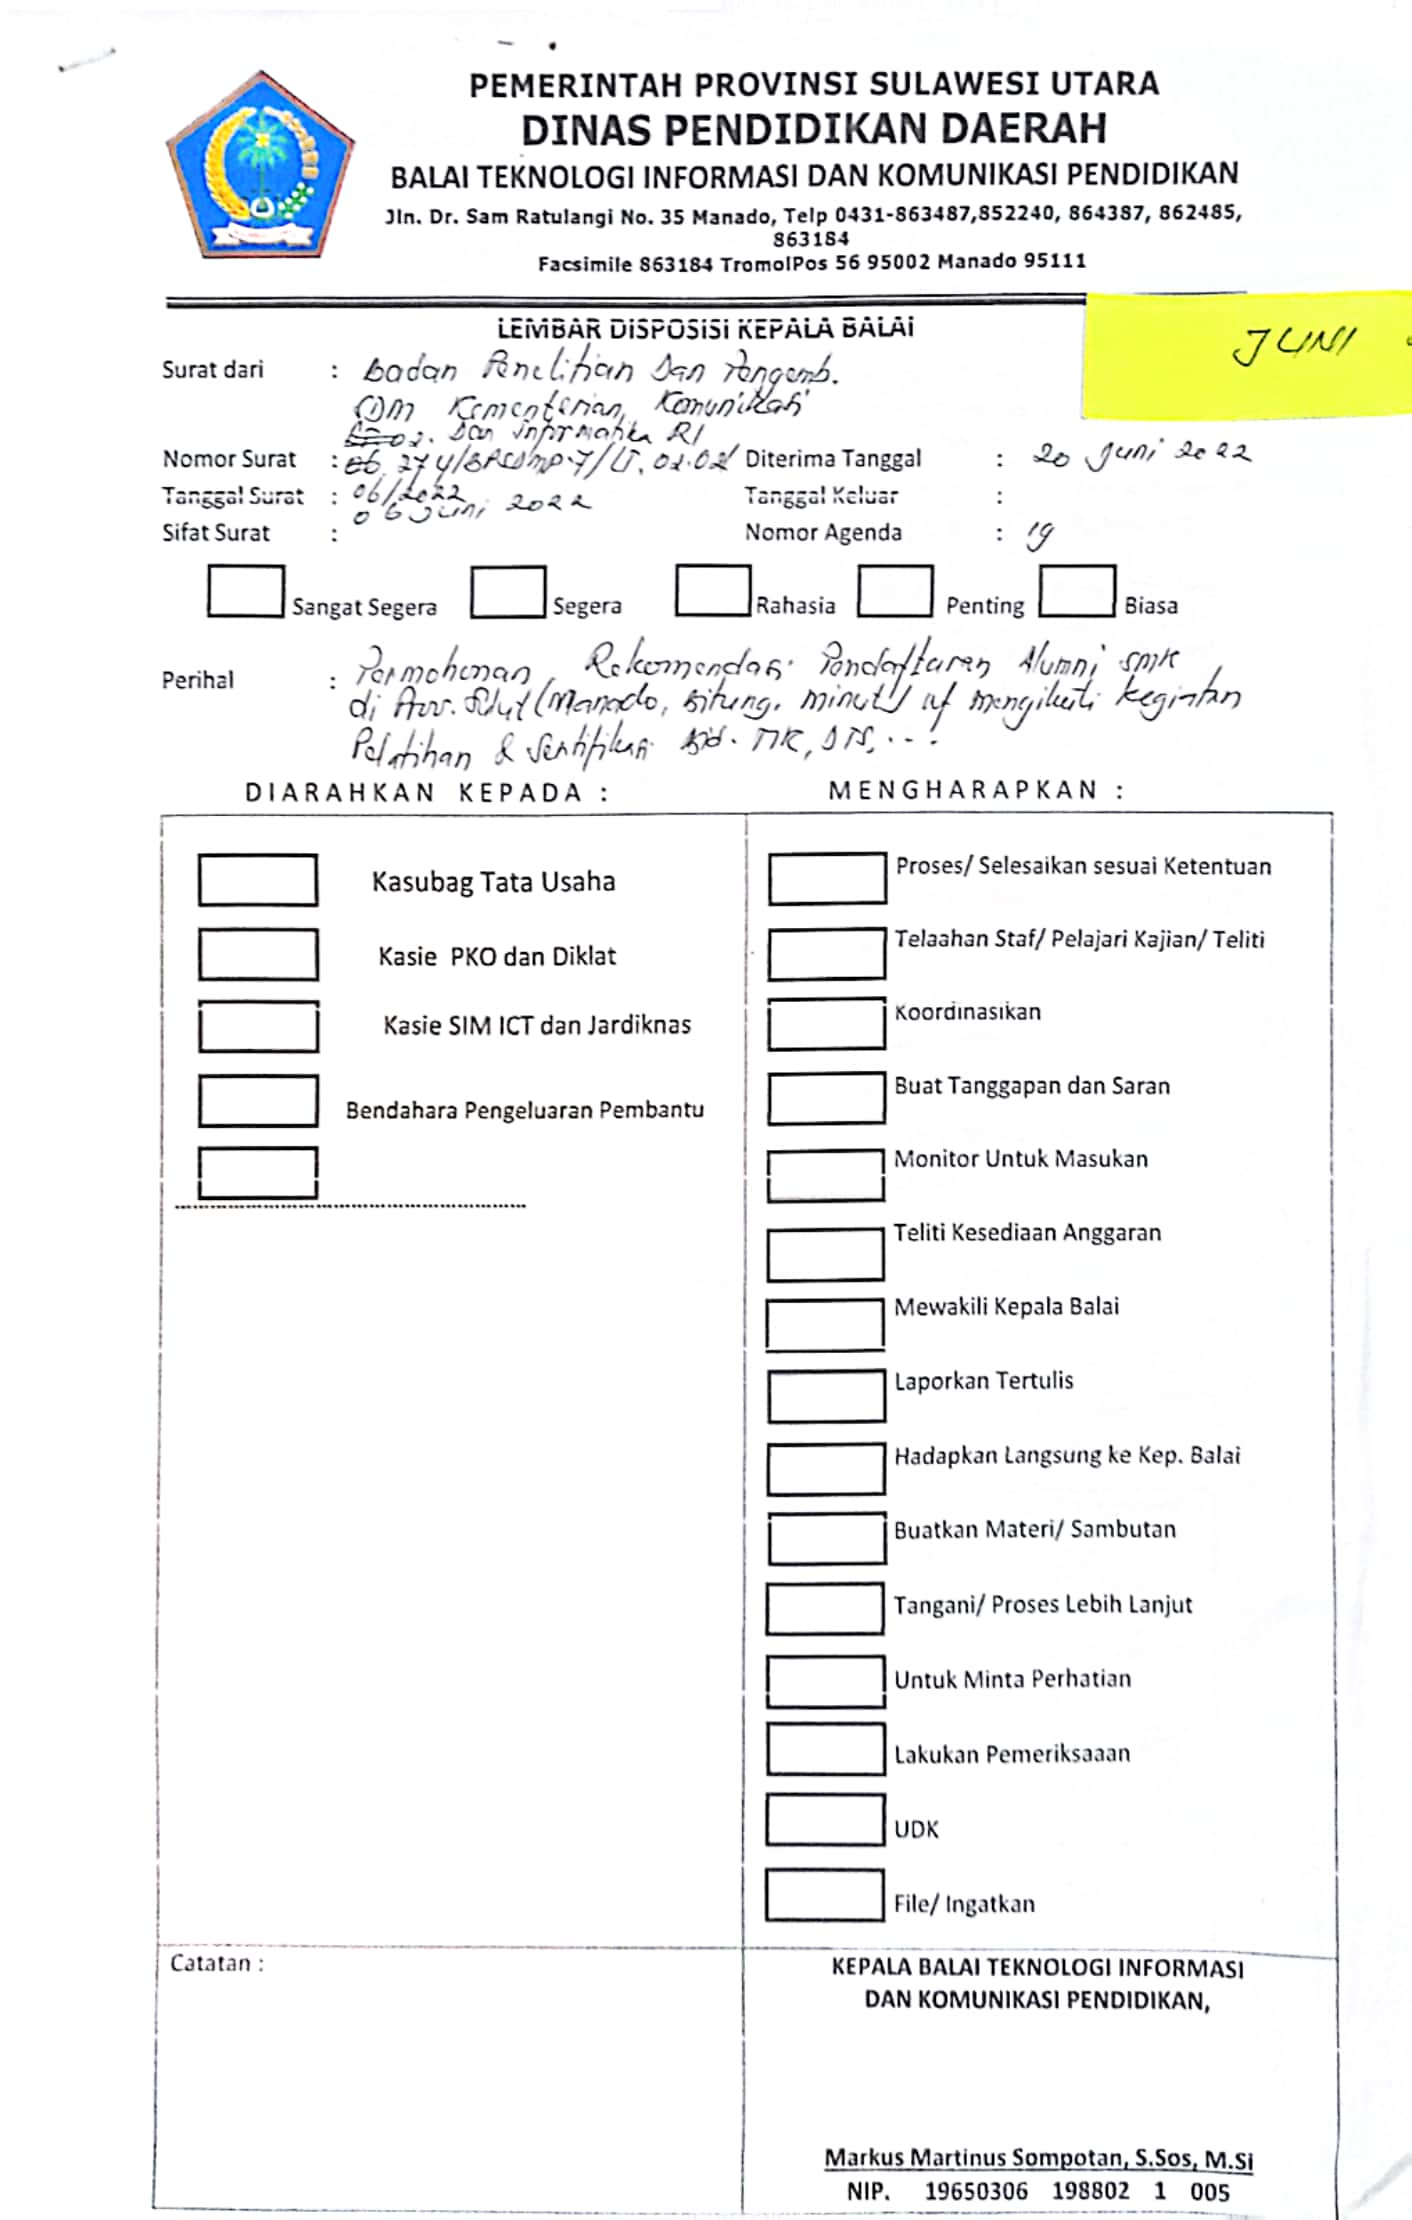 PEMERINTAH PROVINSI SULAWESI UTARA
DINAS PENDIDIKAN DAERAH
BALAI TEKNOLOGI INFORMASI DAN KOMUNIKASI PENDIDIKAN
Jln. Dr. Sam Ratulangi No. 35 Manado, Telp 0431-863487,852240, 864387, 862485,
863184
Facsimile 863184 TromolPos 56 95002 Manado 95111
JUNI
LEMBAR DISPOSISI KEPALA BALAI
Surat dari : Badan Penelitian Dan Pengemb.
SDM Kementerian Komunikasi
Dan Informatika RI
Nomor Surat : Diterima Tanggal : 20 Juni 2022
06/2022
Tanggal Surat : 06 Juni 2022 Tanggal Keluar :
Sifat Surat : Nomor Agenda : 19
Sangat Segera Segera Rahasia Penting Biasa
Perihal : Permohonan Rekomendasi Pendaftaran Alumni SMK
di Prov. Sulut (Manado, Bitung, Minut) mengikuti kegiatan
Pelatihan & Sertifikasi Bid. TIK, DTS, ...!
DIARAHKAN KEPADA : MENGHARAPKAN :
Kasubag Tata Usaha
Kasie PKO dan Diklat
Kasie SIM ICT dan Jardiknas
Bendahara Pengeluaran Pembantu
Proses/ Selesaikan sesuai Ketentuan
Telaahan Staf/ Pelajari Kajian/ Teliti
Koordinasikan
Buat Tanggapan dan Saran
Monitor Untuk Masukan
Teliti Kesediaan Anggaran
Mewakili Kepala Balai
Laporkan Tertulis
Hadapkan Langsung ke Kep. Balai
Buatkan Materi/ Sambutan
Tangani/ Proses Lebih Lanjut
Untuk Minta Perhatian
Lakukan Pemeriksaaan
UDK
File/ Ingatkan
Catatan :
KEPALA BALAI TEKNOLOGI INFORMASI
DAN KOMUNIKASI PENDIDIKAN,
Markus Martinus Sompotan, S.Sos, M.Si
NIP. 19650306 198802 1 005